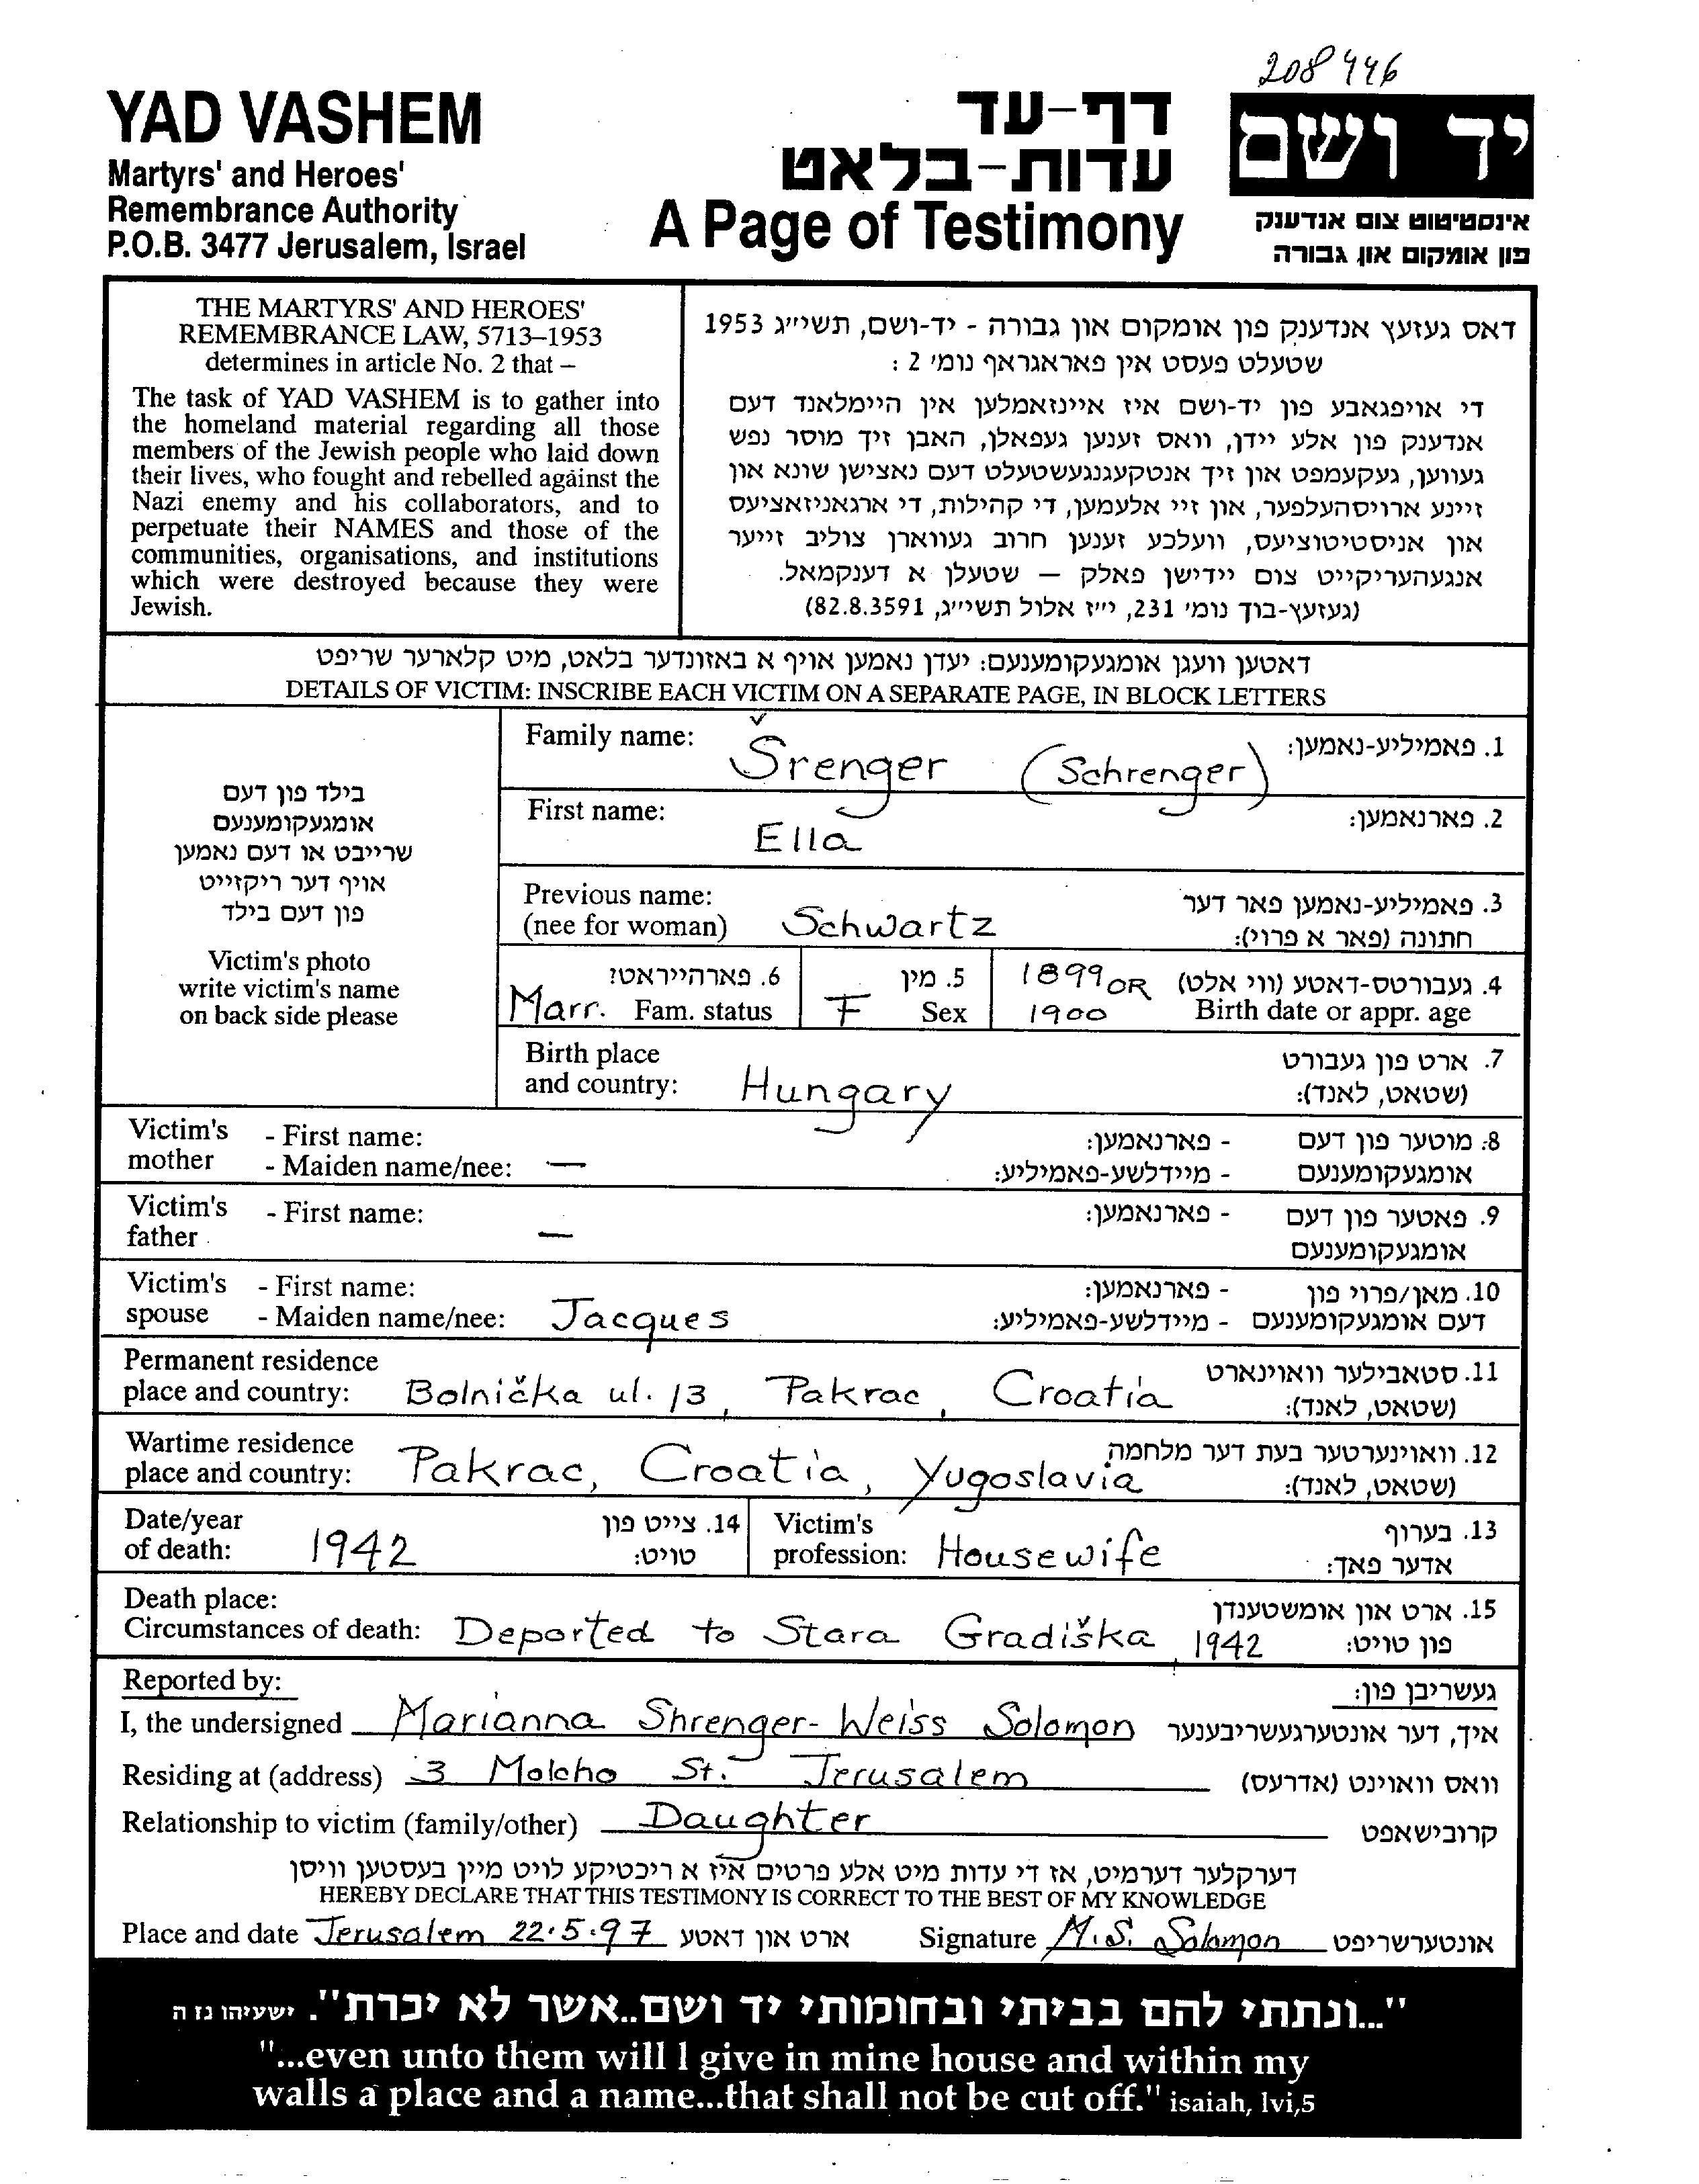 208446
YAD VASHEM
Martyrs' and Heroes'
Remembrance Authority
P.O.B. 3477 Jerusalem, Israel
דף-עד
עדות-בלאט
A Page of Testimony
יד ושם
אינסטיטוט צום אנדענק
פון אומקום און גבורה
THE MARTYRS' AND HEROES'
REMEMBRANCE LAW, 5713–1953
determines in article No. 2 that –
The task of YAD VASHEM is to gather into
the homeland material regarding all those
members of the Jewish people who laid down
their lives, who fought and rebelled against the
Nazi enemy and his collaborators, and to
perpetuate their NAMES and those of the
communities, organisations, and institutions
which were destroyed because they were
Jewish.
דאס געזעץ אנדענק פון אומקום און גבורה - יד-ושם, תשי״ג 1953
שטעלט פעסט אין פאראגראף נומ׳ 2 :
די אויפגאבע פון יד-ושם איז איינזאמלען אין היימלאנד דעם
אנדענק פון אלע יידן, וואס זענען געפאלן, האבן זיך מוסר נפש
געווען, געקעמפט און זיך אנטקעגנגעשטעלט דעם נאצישן שונא און
זיינע ארויסהעלפער, און זיי אלעמען, די קהילות, די ארגאניזאציעס
און אניסטיטוציעס, וועלכע זענען חרוב געווארן צוליב זייער
אנגעהעריקייט צום יידישן פאלק — שטעלן א דענקמאל.
(געזעץ-בוך נומ׳ 231, י״ז אלול תשי״ג, 82.8.3591)
דאטען וועגן אומגעקומענעם: יעדן נאמען אויף א באזונדער בלאט, מיט קלארער שריפט
DETAILS OF VICTIM: INSCRIBE EACH VICTIM ON A SEPARATE PAGE, IN BLOCK LETTERS
בילד פון דעם
אומגעקומענעם
שרייבט או דעם נאמען
אויף דער ריקזייט
פון דעם בילד
Victim's photo
write victim's name
on back side please
Family name: Šrenger (Schrenger) 1. פאמיליע-נאמען:
First name: Ella 2. פארנאמען:
Previous name: 3. פאמיליע-נאמען פאר דער
(nee for woman) Schwartz חתונה (פאר א פרוי):
6. פארהייראט? 5. מין 1899 OR 4. געבורטס-דאטע (ווי אלט)
Marr. Fam. status F Sex 1900 Birth date or appr. age
Birth place 7. ארט פון געבורט
and country: Hungary (שטאט, לאנד):
Victim's - First name: - פארנאמען: 8. מוטער פון דעם
mother - Maiden name/nee: — - מיידלשע-פאמיליע: אומגעקומענעם
Victim's - First name: - פארנאמען: 9. פאטער פון דעם
father — אומגעקומענעם
Victim's - First name: - פארנאמען: 10. מאן/פרוי פון
spouse - Maiden name/nee: Jacques - מיידלשע-פאמיליע: דעם אומגעקומענעם
Permanent residence 11. סטאבילער וואוינארט
place and country: Bolnička ul. 13, Pakrac, Croatia (שטאט, לאנד):
Wartime residence 12. וואוינערטער בעת דער מלחמה
place and country: Pakrac, Croatia, Yugoslavia (שטאט, לאנד):
Date/year 14. צייט פון Victim's 13. בערוף
of death: 1942 טויט: profession: Housewife אדער פאך:
Death place: 15. ארט און אומשטענדן
Circumstances of death: Deported to Stara Gradiška, 1942 פון טויט:
Reported by: געשריבן פון:
I, the undersigned Marianna Shrenger-Weiss Solomon איך, דער אונטערגעשריבענער
Residing at (address) 3 Molcho St. Jerusalem וואס וואוינט (אדרעס)
Relationship to victim (family/other) Daughter קרובישאפט
דערקלער דערמיט, אז די עדות מיט אלע פרטים איז א ריכטיקע לויט מיין בעסטען וויסן
HEREBY DECLARE THAT THIS TESTIMONY IS CORRECT TO THE BEST OF MY KNOWLEDGE
Place and date Jerusalem 22.5.97 ארט און דאטע Signature M.S. Solomon אונטערשריפט
"...ונתתי להם בביתי ובחומותי יד ושם..אשר לא יכרת". ישעיהו נז ה
"...even unto them will I give in mine house and within my
walls a place and a name...that shall not be cut off." isaiah, lvi,5